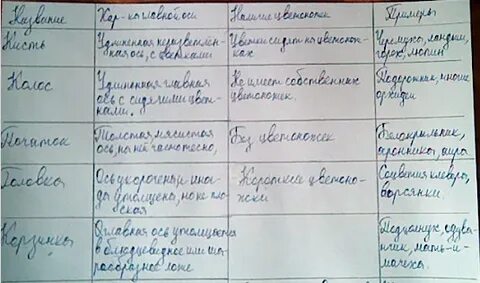 Название
Хар-ка главной оси
Наличие цветоножек
Примеры
Кисть
Удлиненная неразветвлён-
ная ось, с цветками
Цветки сидят на цветонож-
ках
Черемуха, ландыш,
горох, люпин
Колос
Удлиненная главная
ось с сидячими цвет-
ками.
Не имеет собственных
цветоножек.
Подорожник, многие
орхидеи
Початок
Толстая, мясистая
ось,
Без цветоножек
Белокрыльник,
аронника, аира
Головка
Ось укорочена, ино-
гда утолщена, но не пло-
ская
Короткие цветоно-
жки
Соцветия клевера,
ворсянки.
Корзинка
главная ось утолщается
в блюдцевидное или ша-
рообразное ложе
Подсолнух, одува-
нчик, мать-и-
мачеха.